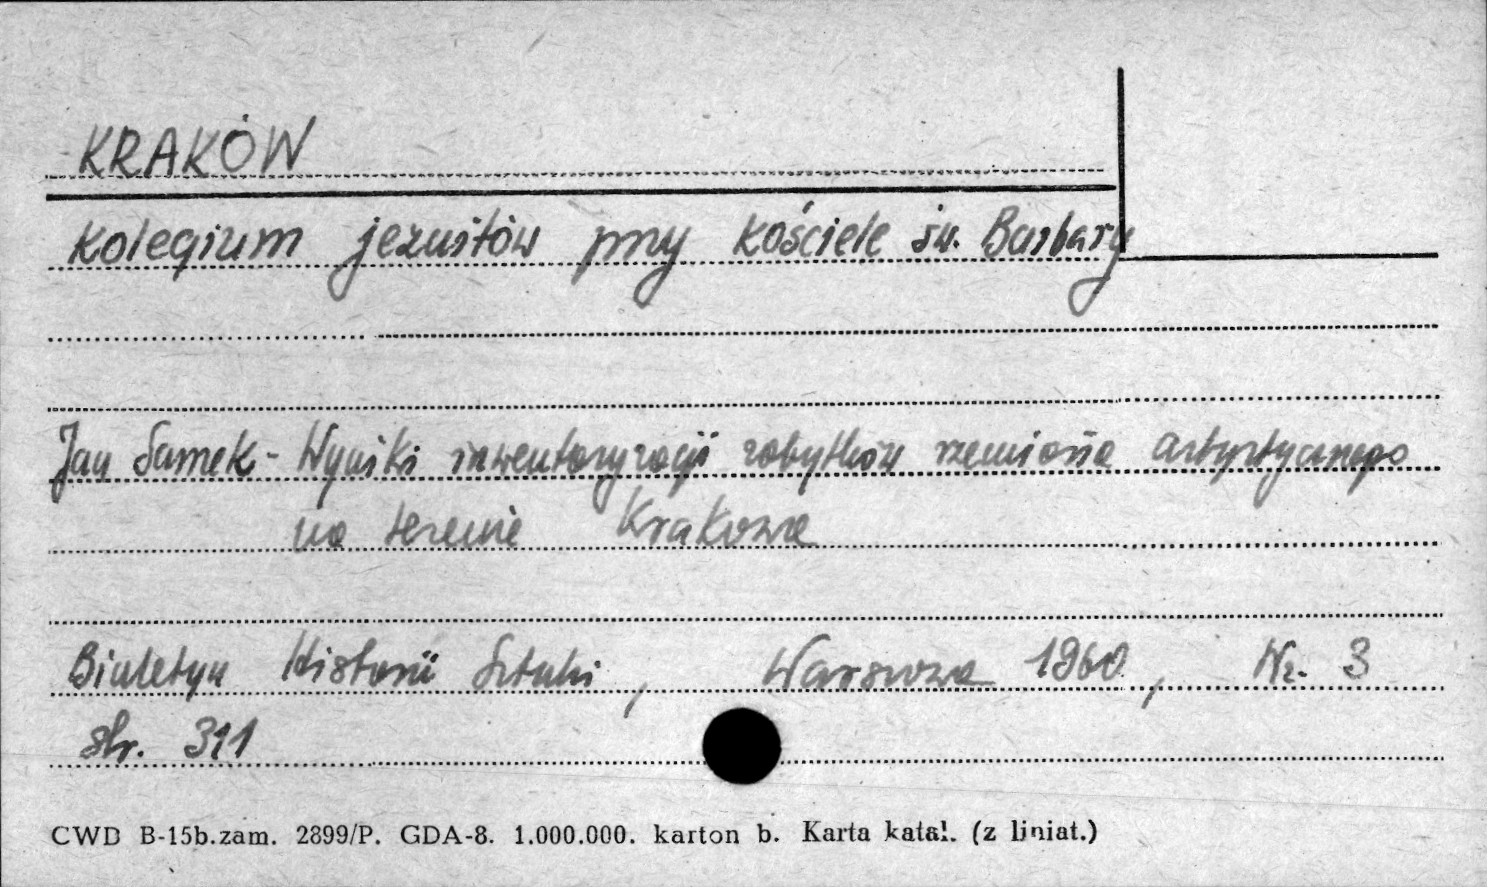 KRAKÓW
Kolegium jezuitów przy kościele św. Barbary
Jan Samek - Wyniki inwentaryzacji zabytków rzemiosła artystycznego
na terenie Krakowa
Biuletyn Historii Sztuki, Warszawa 1960, Nr. 3
str. 311
CWD B-15b.zam. 2899/P. GDA-8. 1.000.000. karton b. Karta katal. (z liniat.)